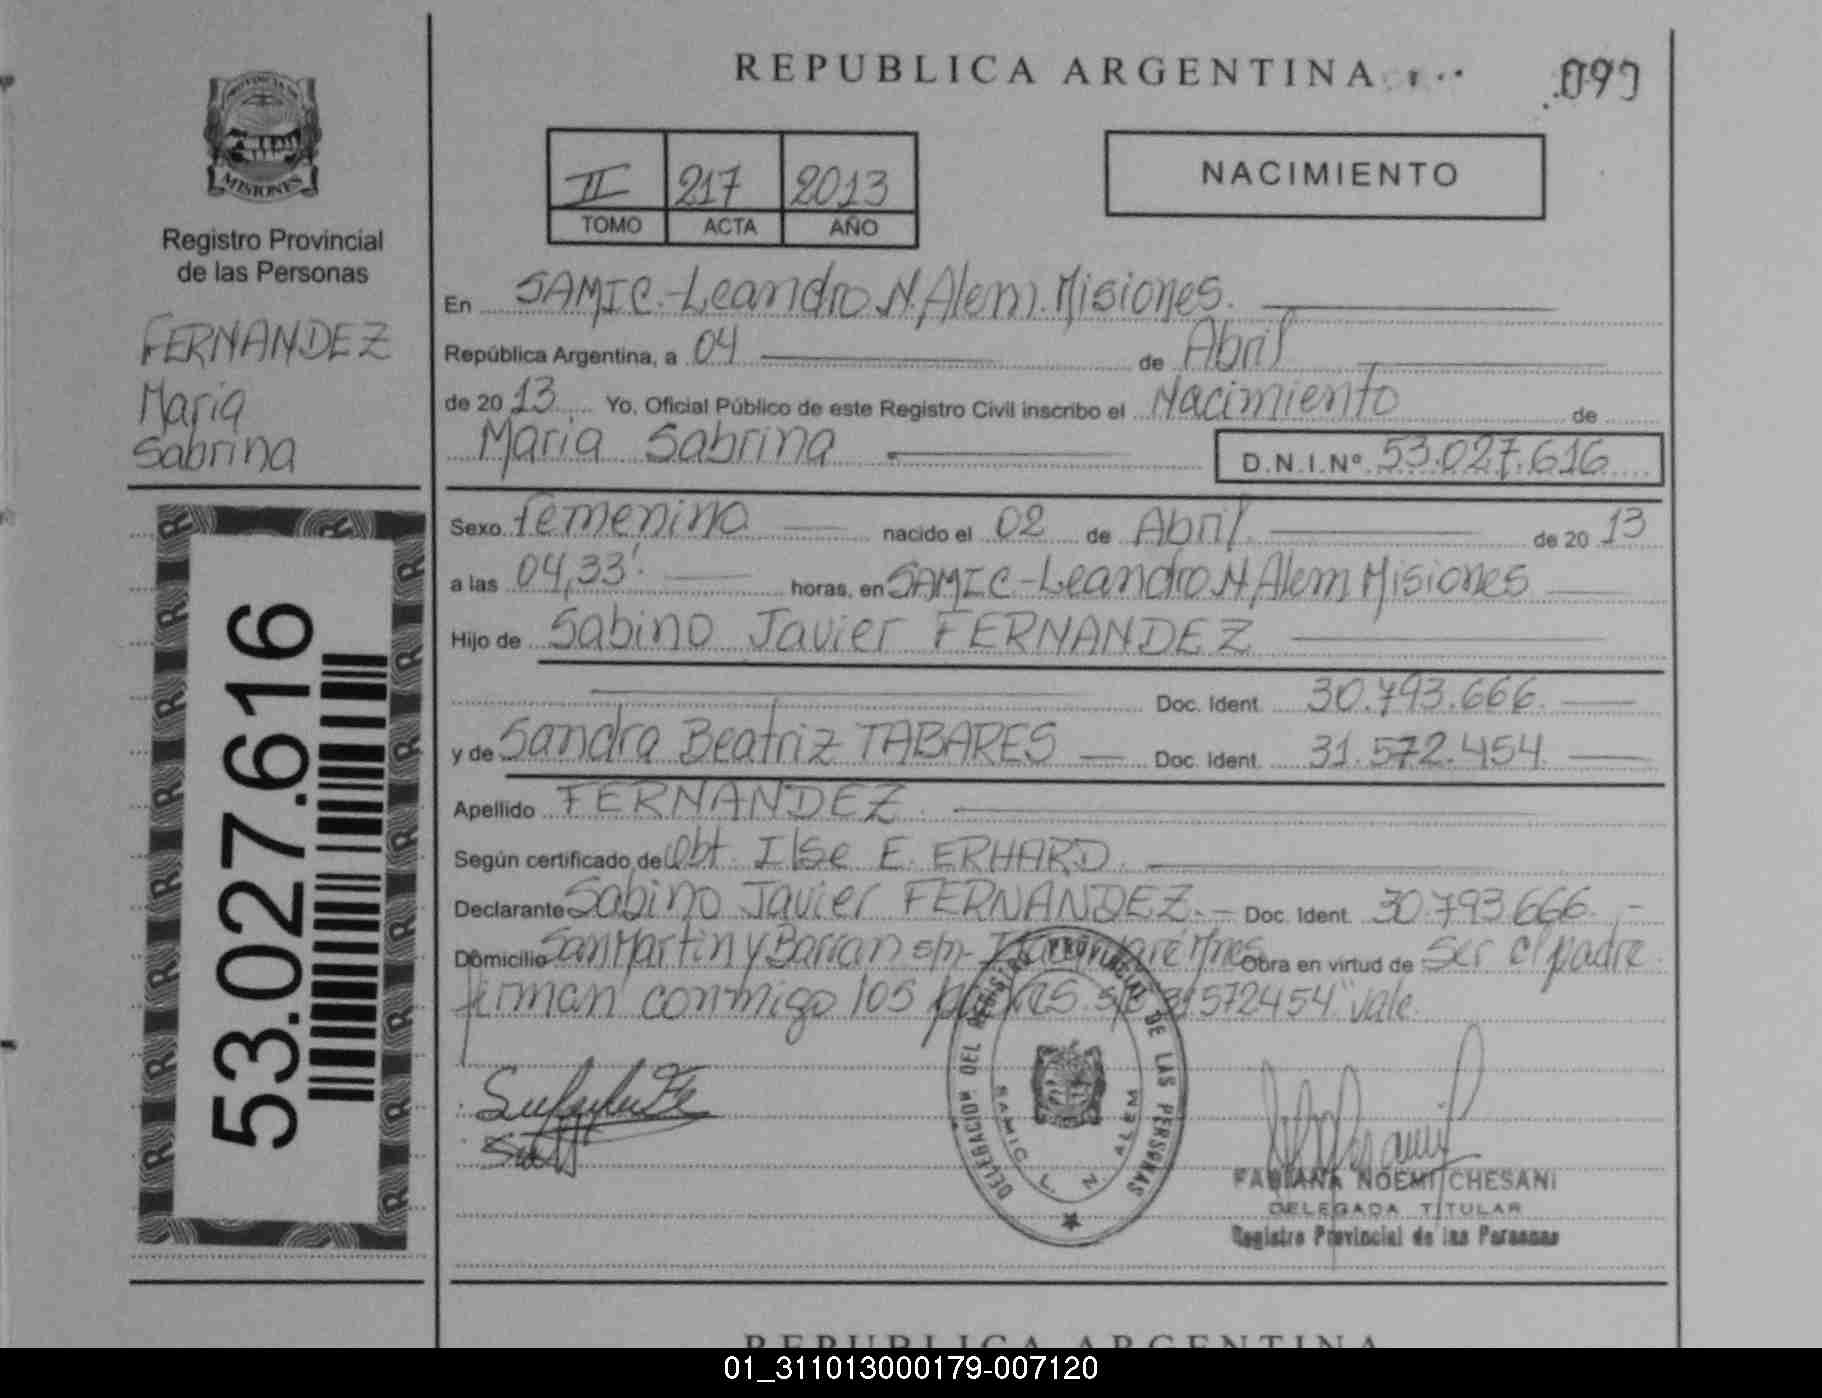 REPUBLICA ARGENTINA
090
PROVINCIA DE
MISIONES
Registro Provincial
de las Personas
FERNANDEZ
Maria
Sabrina
53.027.616
II 217 2013
TOMO ACTA AÑO
NACIMIENTO
En SAMIC.-Leandro N. Alem. Misiones.
República Argentina, a 04 de Abril
de 2013 Yo, Oficial Público de este Registro Civil inscribo el Nacimiento de
Maria Sabrina D.N.I.Nº 53.027.616
Sexo femenino nacido el 02 de Abril de 2013
a las 04,33' horas, en SAMIC-Leandro N Alem Misiones
Hijo de Sabino Javier FERNANDEZ
Doc. Ident. 30.793.666.
y de Sandra Beatriz TABARES Doc. Ident. 31.572.454.
Apellido FERNANDEZ
Según certificado de Obt. Ilse E. ERHARD.
Declarante Sabino Javier FERNANDEZ. Doc. Ident. 30.793.666.
Domicilio San Martin y Barran s/n- Obra en virtud de ser el padre
firman conmigo los 31572454" vale.
DELEGACION DEL REGISTRO PROVINCIAL DE LAS PERSONAS
SAMIC L. N. ALEM
FABIANA NOEMI CHESANI
DELEGADA TITULAR
Registro Provincial de las Personas
REPUBLICA ARGENTINA
01_311013000179-007120